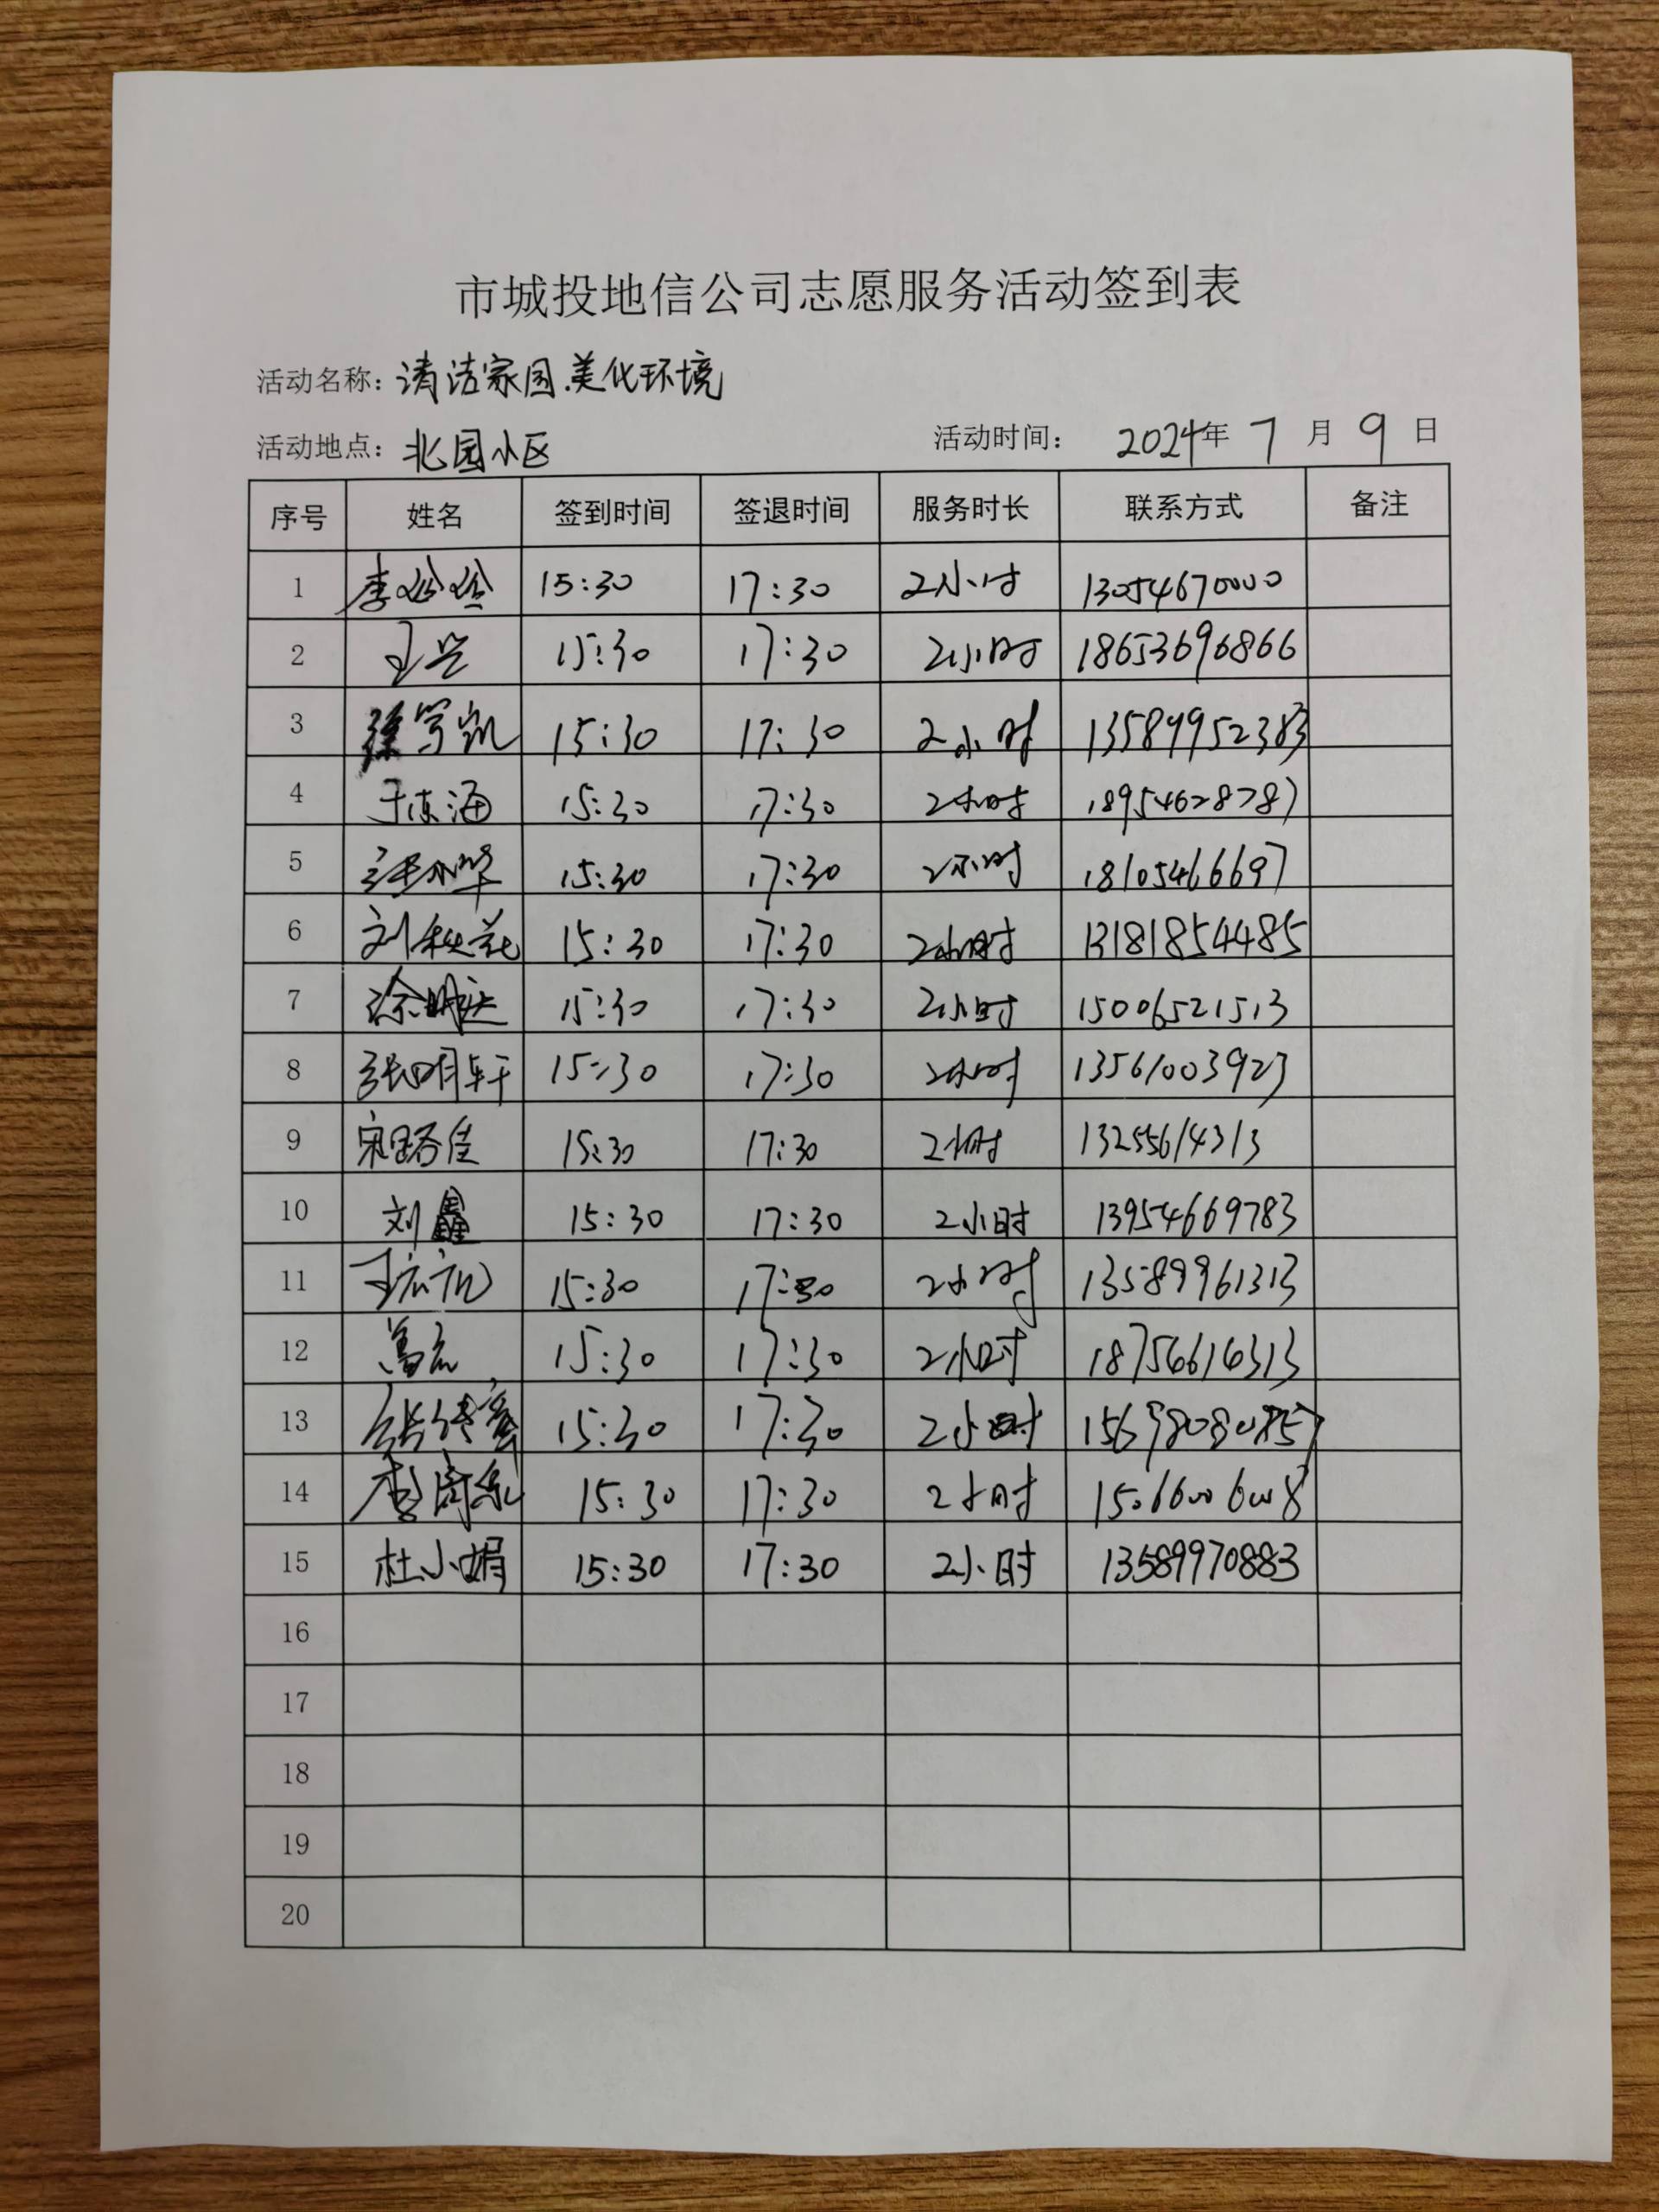 市城投地信公司志愿服务活动签到表
活动名称: 清洁家园.美化环境
活动地点: 北园小区 活动时间: 2024年 7 月 9 日
序号 姓名 签到时间 签退时间 服务时长 联系方式 备注
1 李 15:30 17:30 2小时 13054670000
2 王兴 15:30 17:30 2小时 18653696866
3 徐写凯 15:30 17:30 2小时 13589952383
4 于东海 15:30 17:30 2小时 18954628787
5 15:30 17:30 2小时 18105466697
6 刘秋花 15:30 17:30 2小时 13181854485
7 徐明达 15:30 17:30 2小时 15006521513
8 张明轩 15:30 17:30 2小时 13561003923
9 宋璐佳 15:30 17:30 2小时 13255614313
10 刘鑫 15:30 17:30 2小时 13954669783
11 15:30 17:30 2小时 13589961313
12 15:30 17:30 2小时 18756616313
13 15:30 17:30 2小时
14 李 15:30 17:30 2小时 15066006008
15 杜小娟 15:30 17:30 2小时 13589970883
16
17
18
19
20